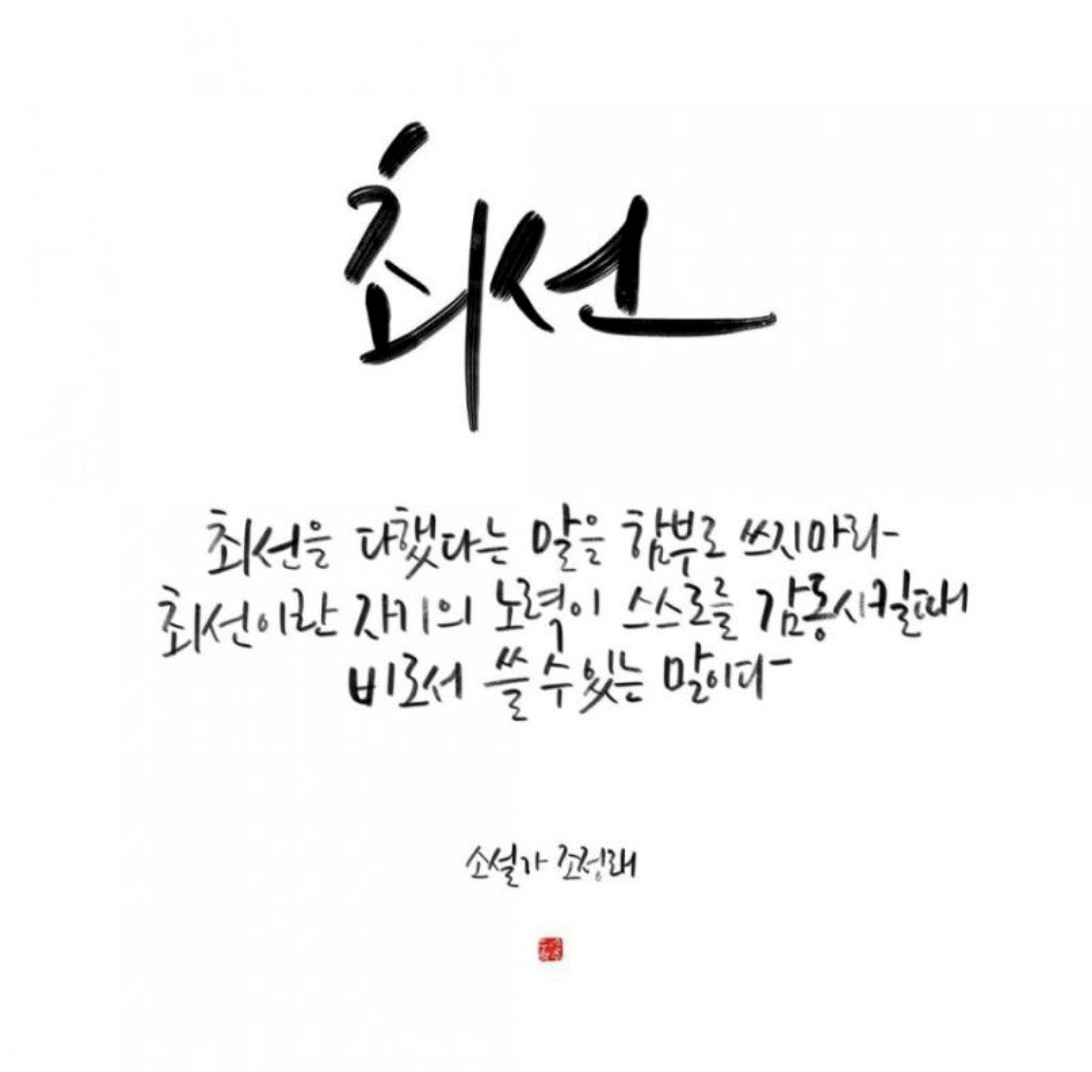 최선
최선을 다했다는 말을 함부로 쓰지마라
최선이란 자기의 노력이 스스로를 감동시킬때
비로서 쓸 수 있는 말이다
소설가 조정래